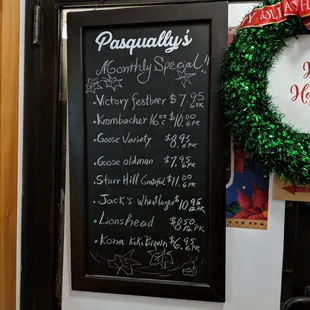 Pasqually's
Monthly Special!!
. Victory festbeer $7.95
6PK
. Krombacher 16oz $10.00
6PK
. Goose Variety $8.95
6PK
. Goose oldman $7.95
6PK
. Starr Hill Grateful $11.00
6PK
. Jack's wheat lager $10.95
12PK
. Lionshead $8.50
12PK
. Kona Kiki Brown $6.95
6PK